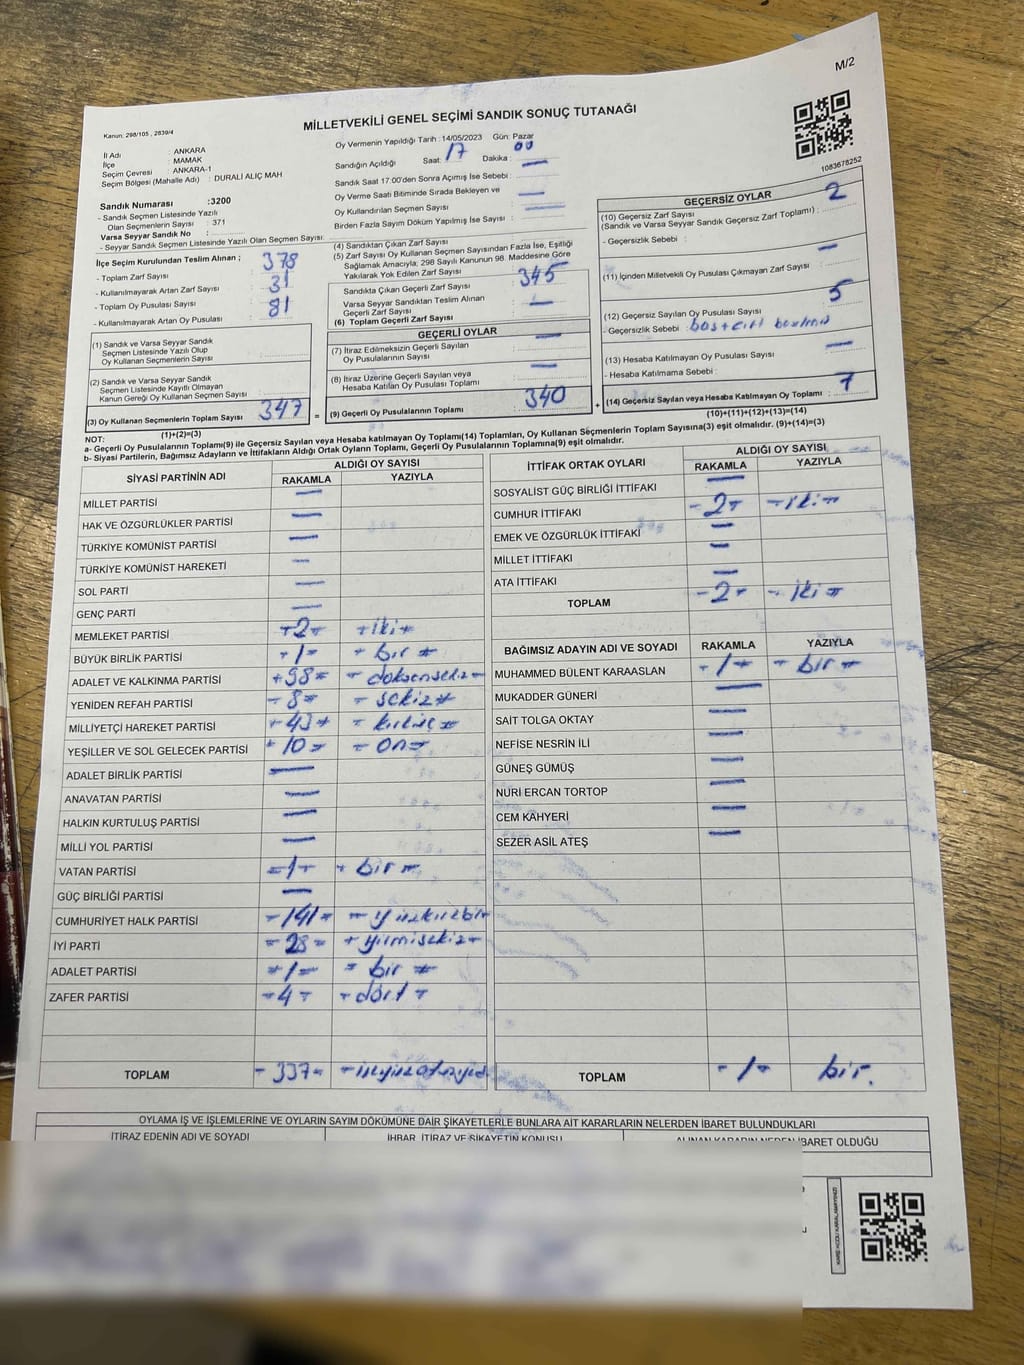 M/2
MİLLETVEKİLİ GENEL SEÇİMİ SANDIK SONUÇ TUTANAĞI
Kanun: 298/105 , 2839/4
1083678252
İl Adı : ANKARA
İlçe : MAMAK
Seçim Çevresi : ANKARA-1
Seçim Bölgesi (Mahalle Adı) : DURALİ ALIÇ MAH
Sandık Numarası :3200
- Sandık Seçmen Listesinde Yazılı
Olan Seçmenlerin Sayısı : 371
Varsa Seyyar Sandık No :
- Seyyar Sandık Seçmen Listesinde Yazılı Olan Seçmen Sayısı:
İlçe Seçim Kurulundan Teslim Alınan ;
- Toplam Zarf Sayısı : 378
- Kullanılmayarak Artan Zarf Sayısı : 31
- Toplam Oy Pusulası Sayısı :
- Kullanılmayarak Artan Oy Pusulası : 81
(1) Sandık ve Varsa Seyyar Sandık
Seçmen Listesinde Yazılı Olup
Oy Kullanan Seçmenlerin Sayısı :
(2) Sandık ve Varsa Seyyar Sandık
Seçmen Listesinde Kayıtlı Olmayan
Kanun Gereği Oy Kullanan Seçmen Sayısı :
(3) Oy Kullanan Seçmenlerin Toplam Sayısı : 347 =
(1)+(2)=(3)
Oy Vermenin Yapıldığı Tarih : 14/05/2023 Gün: Pazar
Sandığın Açıldığı Saat: 17 Dakika : 00
Sandık Saat 17.00'den Sonra Açımış İse Sebebi : —
Oy Verme Saati Bitiminde Sırada Bekleyen ve
Oy Kullandırılan Seçmen Sayısı : —
Birden Fazla Sayım Döküm Yapılmış İse Sayısı : —
(4) Sandıktan Çıkan Zarf Sayısı
(5) Zarf Sayısı Oy Kullanan Seçmen Sayısından Fazla İse, Eşitliği
Sağlamak Amacıyla; 298 Sayılı Kanunun 98. Maddesine Göre
Yakılarak Yok Edilen Zarf Sayısı
Sandıkta Çıkan Geçerli Zarf Sayısı : 345
Varsa Seyyar Sandıktan Teslim Alınan
Geçerli Zarf Sayısı : —
(6) Toplam Geçerli Zarf Sayısı
GEÇERLİ OYLAR
(7) İtiraz Edilmeksizin Geçerli Sayılan
Oy Pusulalarının Sayısı : —
(8) İtiraz Üzerine Geçerli Sayılan veya
Hesaba Katılan Oy Pusulası Toplamı : —
(9) Geçerli Oy Pusulalarının Toplamı : 340 +
GEÇERSİZ OYLAR
(10) Geçersiz Zarf Sayısı
(Sandık ve Varsa Seyyar Sandık Geçersiz Zarf Toplamı) : 2
- Geçersizlik Sebebi :
(11) İçinden Milletvekili Oy Pusulası Çıkmayan Zarf Sayısı : —
(12) Geçersiz Sayılan Oy Pusulası Sayısı : 5
- Geçersizlik Sebebi :
(13) Hesaba Katılmayan Oy Pusulası Sayısı : —
- Hesaba Katılmama Sebebi :
(14) Geçersiz Sayılan veya Hesaba Katılmayan Oy Toplamı : 7
(10)+(11)+(12)+(13)=(14)
NOT:
a- Geçerli Oy Pusulalarının Toplamı(9) ile Geçersiz Sayılan veya Hesaba katılmayan Oy Toplamı(14) Toplamları, Oy Kullanan Seçmenlerin Toplam Sayısına(3) eşit olmalıdır. (9)+(14)=(3)
b- Siyasi Partilerin, Bağımsız Adayların ve İttifakların Aldığı Ortak Oyların Toplamı, Geçerli Oy Pusulalarının Toplamına(9) eşit olmalıdır.
SİYASİ PARTİNİN ADI ALDIĞI OY SAYISI
RAKAMLA YAZIYLA
MİLLET PARTİSİ —
HAK VE ÖZGÜRLÜKLER PARTİSİ —
TÜRKİYE KOMÜNİST PARTİSİ —
TÜRKİYE KOMÜNİST HAREKETİ —
SOL PARTİ —
GENÇ PARTİ —
MEMLEKET PARTİSİ 2 iki
BÜYÜK BİRLİK PARTİSİ 1 bir
ADALET VE KALKINMA PARTİSİ 98 doksansekiz
YENİDEN REFAH PARTİSİ 8 sekiz
MİLLİYETÇİ HAREKET PARTİSİ 43 kırküç
YEŞİLLER VE SOL GELECEK PARTİSİ 10 on
ADALET BİRLİK PARTİSİ —
ANAVATAN PARTİSİ —
HALKIN KURTULUŞ PARTİSİ —
MİLLİ YOL PARTİSİ —
VATAN PARTİSİ 1 bir
GÜÇ BİRLİĞİ PARTİSİ —
CUMHURİYET HALK PARTİSİ 141 yüzkırkbir
İYİ PARTİ 28 yirmisekiz
ADALET PARTİSİ 1 bir
ZAFER PARTİSİ 4 dört
TOPLAM 337
İTTİFAK ORTAK OYLARI ALDIĞI OY SAYISI
RAKAMLA YAZIYLA
SOSYALİST GÜÇ BİRLİĞİ İTTİFAKI —
CUMHUR İTTİFAKI 2 iki
EMEK VE ÖZGÜRLÜK İTTİFAKI —
MİLLET İTTİFAKI —
ATA İTTİFAKI —
TOPLAM 2 iki
BAĞIMSIZ ADAYIN ADI VE SOYADI RAKAMLA YAZIYLA
MUHAMMED BÜLENT KARAASLAN 1 bir
MUKADDER GÜNERİ —
SAİT TOLGA OKTAY —
NEFİSE NESRİN İLİ —
GÜNEŞ GÜMÜŞ —
NURİ ERCAN TORTOP —
CEM KAHYERİ —
SEZER ASİL ATEŞ —
TOPLAM 1 bir.
OYLAMA İŞ VE İŞLEMLERİNE VE OYLARIN SAYIM DÖKÜMÜNE DAİR ŞİKAYETLERLE BUNLARA AİT KARARLARIN NELERDEN İBARET BULUNDUKLARI
İTİRAZ EDENİN ADI VE SOYADI İHBAR, İTİRAZ VE ŞİKAYETİN KONUSU ALINAN KARARIN NEDEN İBARET OLDUĞU